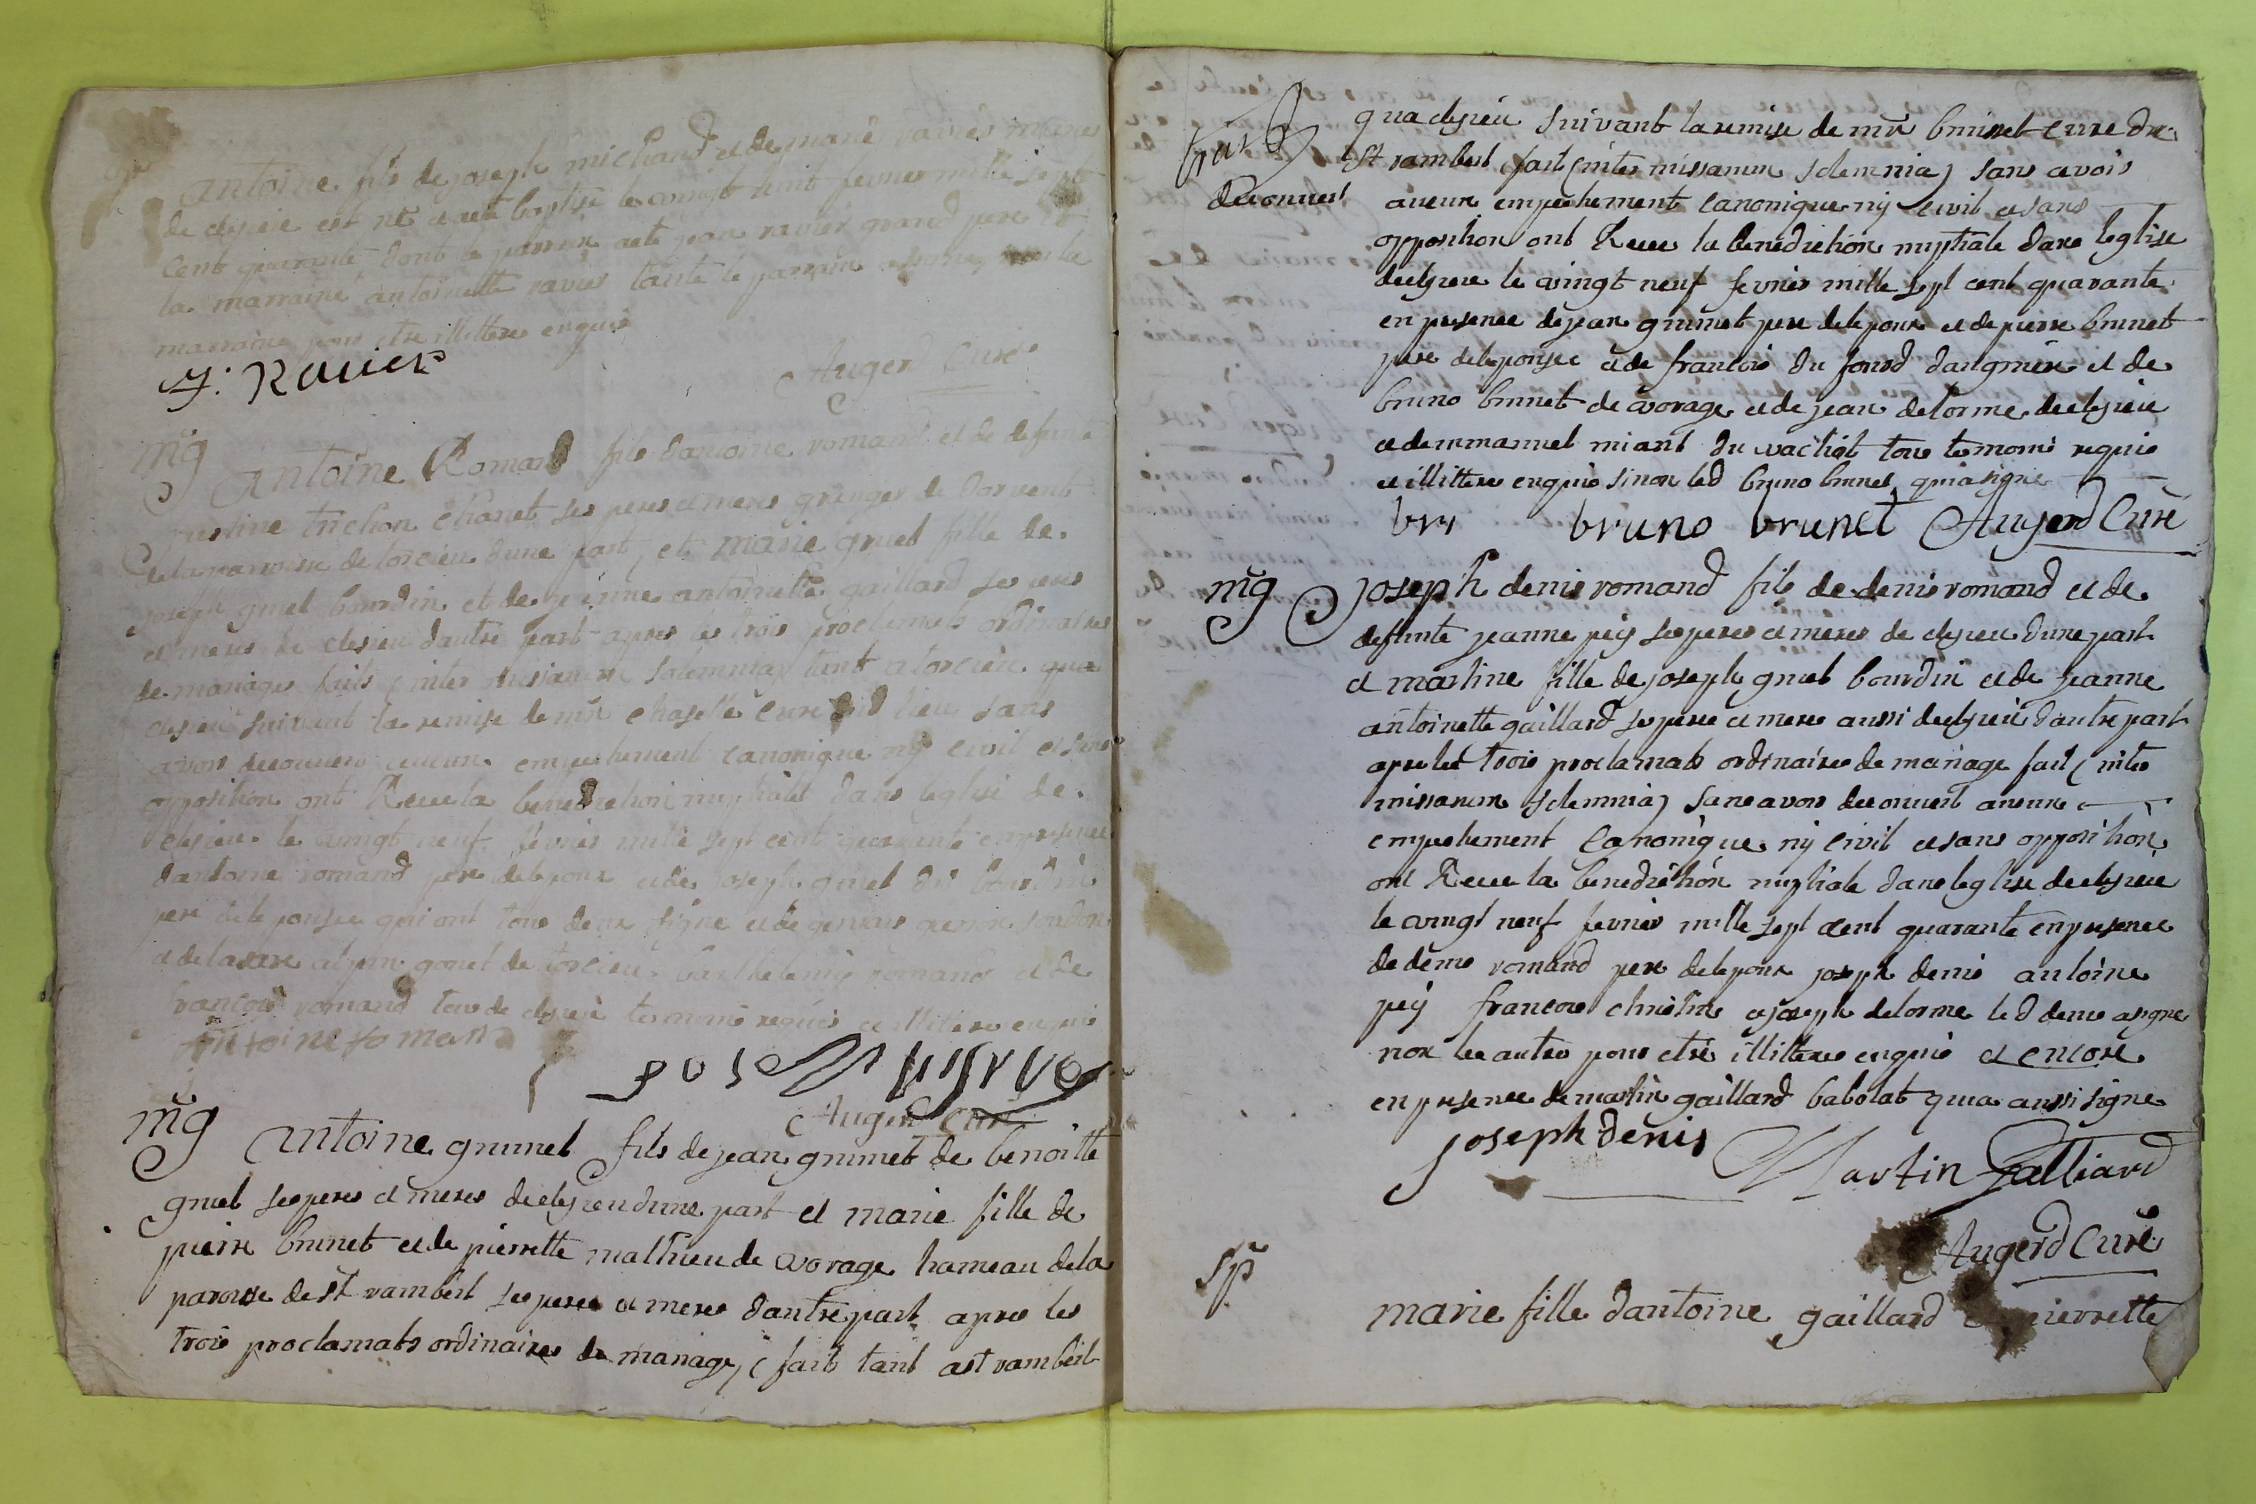 antoine fils de joseph michaud et de marie ravier mariés
de cleyzieu est né et a eté baptisé le vingt huit fevrier mille sept
cent quarante dont le parrain a eté jean ravier grand pere et
la marraine antoinette ravier tante le parrain a signé non la
marraine pour etre illittere enquis
J: Ravier
Augerd Curé
mg
antoine Romand fils dantoine romand et de defunte
trichon chanet ses peres et meres granger de dorvent
de la paroisse de torcieu dune part, et marie gruel fille de
joseph gruel bourdin et de jeanne antoinette gaillard ses peres
et meres de cleyzieu dautre part apres les trois proclamats ordinaires
de mariages faits (inter missarum solemnia) tant a torcieu qua
cleyzieu suivant la remise de mr chapelle curé dud lieu sans
avoir decouvert aucun empechement canonique ny civil et sans
opposition ont Receu la benediction nuptiale dans leglise de
cleyzieu le vingt neuf fevrier mille sept cent quarante en presence
dantoine romand pere de lepoux et de joseph gruel dit bourdin
pere de lepouse qui ont tous deux signé et de
gonet de torcieu barthelemy romand et de
francois romand tous de cleyzieu temoins requis et illiteres enquis
Antoine romand
Augerd Curé
mg
antoine grumet fils de jean grumet de benoitte
gruel ses peres et meres de cleyzieu dune part et marie fille de
pierre brunet et de pierrette mathieu de vorage hameau de la
paroisse de st rambert ses peres et meres dautre part apres les
trois proclamats ordinaires de mariage, (fait tant a st rambert
qua cleyzieu suivant la remise de mr brunet curé du
st rambert fait (inter missarum solemnia) sans avoir
decouvert
aucun empechement canonique ny civil et sans
opposition ont Receu la benediction nuptiale dans leglise
de cleyzieu le vingt neuf fevrier mille sept cent quarante
en presence de jean grumet pere de lepoux et de pierre brunet
pere de lepouse et de francois du fourd et de
bruno brunet de vorage et de jean delorme de cleyzieu
et demmanuel miant du vachat tous temoins requis
et illitteres enquis sinon led bruno brunet qui a signé
bru bruno brunet Augerd Curé
mg
joseph denis romand fils de denis romand et de
defunte jeanne pey ses peres et meres de cleyzieu dune part
et martine fille de joseph gruel bourdin et de jeanne
antoinette gaillard ses peres et meres aussi de cleyzieu dautre part
apres les trois proclamats ordinaires de mariage fait (inter
missarum solemnia) sans avoir decouvert aucun
empechement canonique ny civil et sans opposition
ont Receu la benediction nuptiale dans leglise de cleyzieu
le vingt neuf fevrier mille sept cent quarante en presence
de denis romand pere de lepoux joseph denis antoine
pey francois christin et joseph delorme led denis a signé
non les autres pour etre illitteres enquis et encore
en presence de martin gaillard babolat qui a aussi signé
joseph denis
Martin Galliard
Augerd Curé
sp
marie fille dantoine gaillard pierrette